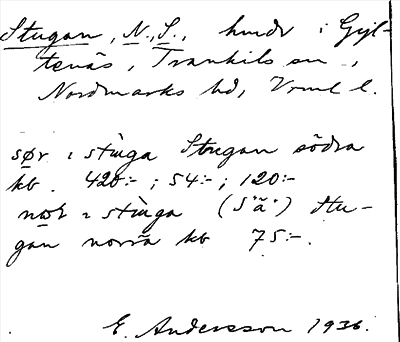 Stugan, N., S., hmdr i Gyl-
tenäs, Trankils sn.,
Nordmarks hd, Vrml l.
sør ı stùga Stugan södra
kb. 420:-; 54:-; 120:-
nor ı stùga (S`ä´) Stu-
gan norra kb 75:-.
E. Andersson 1936.